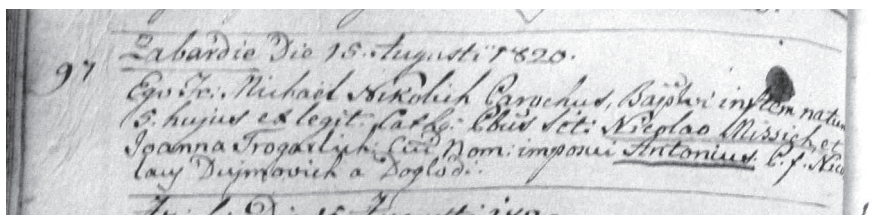 97
Zabardie Die 15. Augusti 1820.
Ego Fr: Michaël Nikolich Parochus, Bapswi inftem natum
5. hujus ex legit: Cath: Cbus sct: Nicolao Missich, et
Joanna Trogarlich: Cui Nom: imposui Antonius. P. f. Nico
laus Dujmovich a Doglodi.
Die 15 Augusti